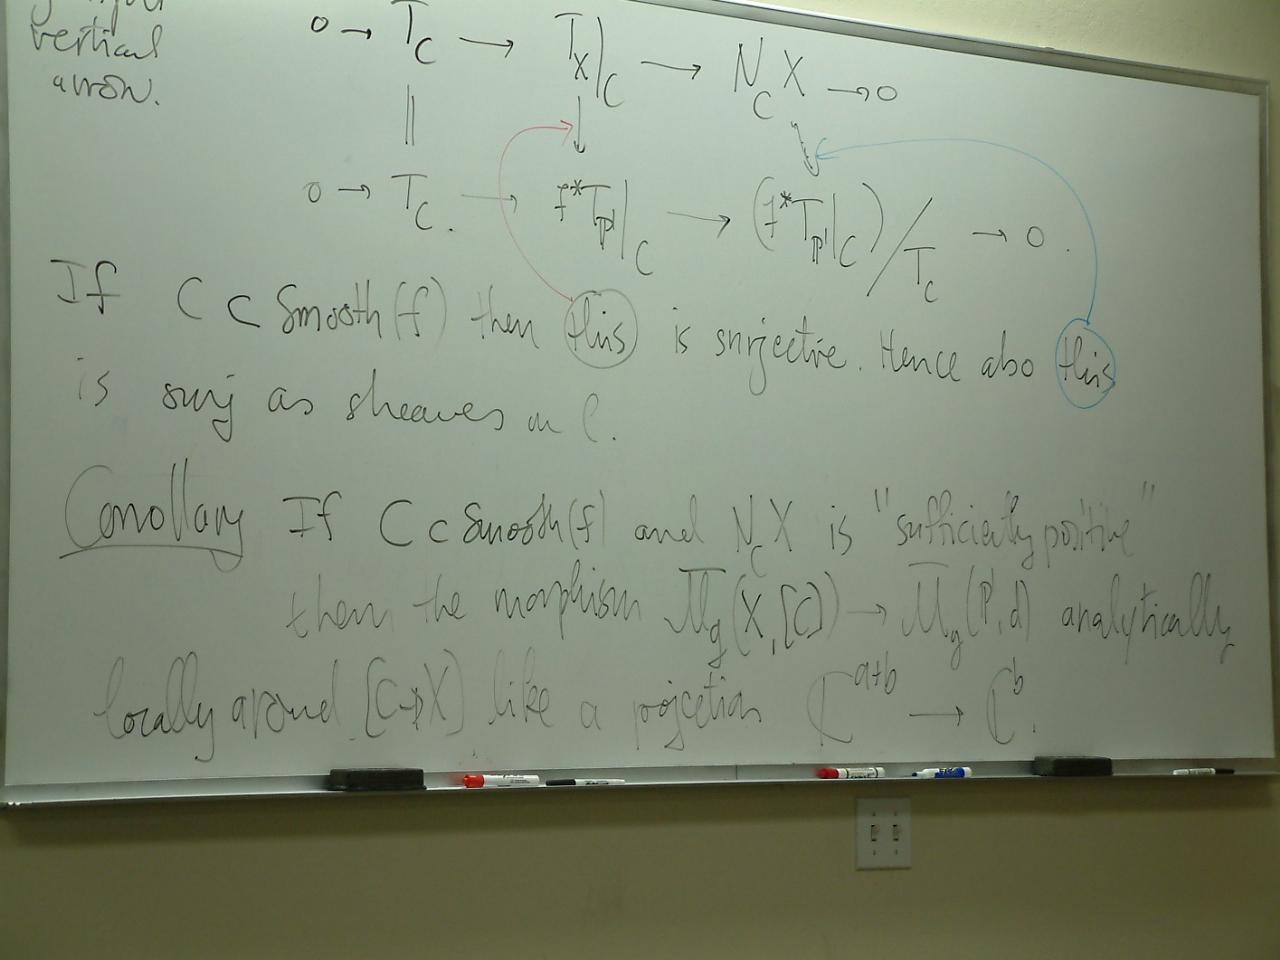 vertical
arrow.
0 → T_C → T_X|_C → N_C X → 0
0 → T_C. → f*T_P¹|_C → (f*T_P¹|_C)/T_C → 0.
If C ⊂ Smooth(f) then this is surjective. Hence also this
is surj as sheaves on C.
Corollary If C ⊂ Smooth(f) and N_C X is "sufficiently positive"
then the morphism M̄_g(X,[C]) → M̄_g(P¹,d) analytically
locally around [C→X] like a projection ℂ^{a+b} → ℂ^b.